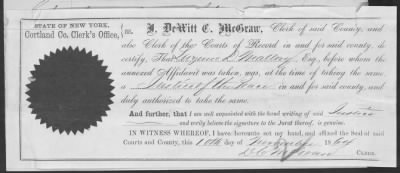 STATE OF NEW YORK,
Cortland Co. Clerk's Office,
ss.
I, DeWitt C. McGraw, Clerk of said County, and
also Clerk of the Courts of Record in and for said county, do
certify, That E. Mallery Esq., before whom the
annexed Affidavit was taken, was, at the time of taking the same,
a Justice of the Peace in and for said county, and
duly authorized to take the same.
And further, that I am well acquainted with the hand writing of said Justice
and verily believe the signature to the Jurat thereof, is genuine.
IN WITNESS WHEREOF, I have hereunto set my hand, and affixed the Seal of said
Courts and County, this 10th day of November 1864
D. C. McGraw Clerk.